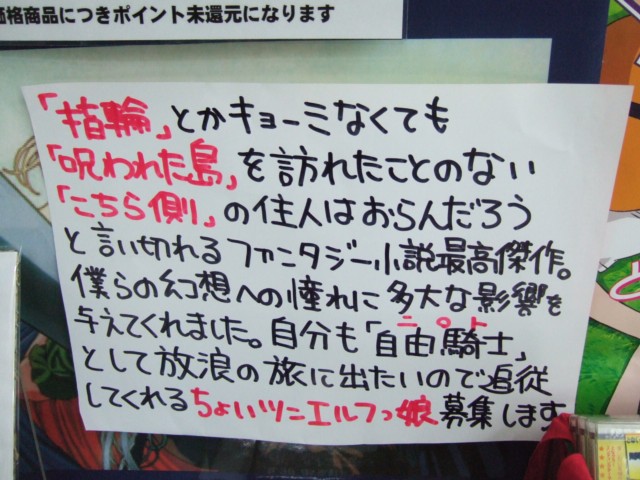 価格商品につきポイント未還元になります
「指輪」とかキョーミなくても
「呪われた島」を訪れたことのない
「こちら側」の住人はおらんだろう
と言い切れるファンタジー小説最高傑作。
僕らの幻想への憧れに多大な影響を
与えてくれました。自分も「自由騎士」
ニート
として放浪の旅に出たいので追従
してくれるちょいツンエルフっ娘募集します